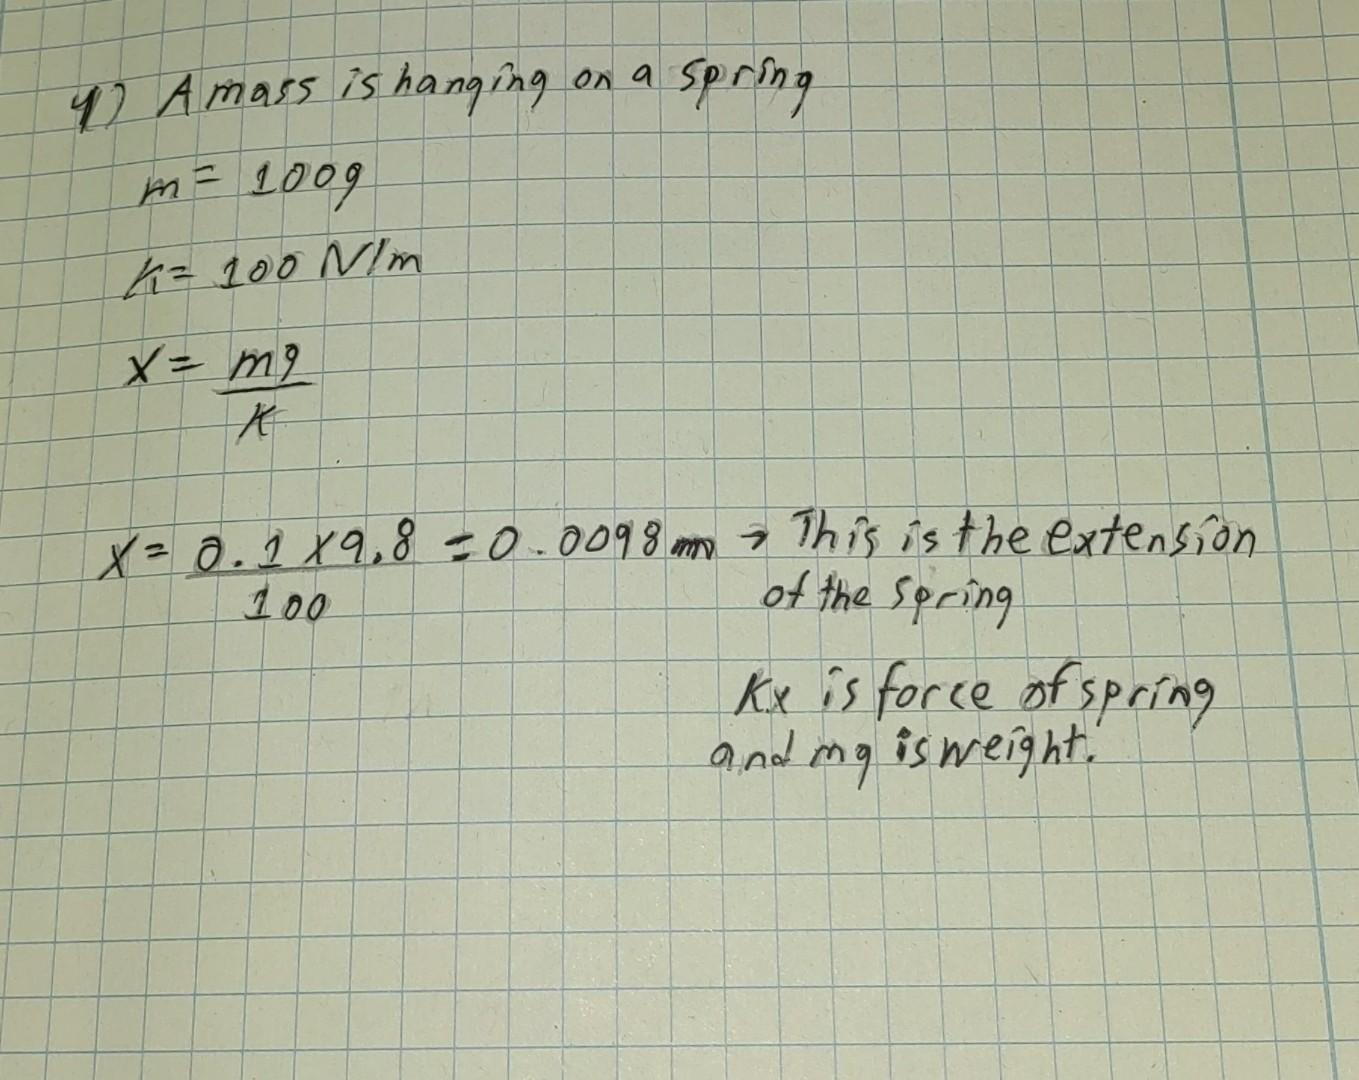 4) A mass is hanging on a spring
m = 100g
k = 100 N/m
x = mg
k
x = 0.1 x 9.8 = 0.0098 m → This is the extension
100
of the spring
Kx is force of spring
and mg is weight.